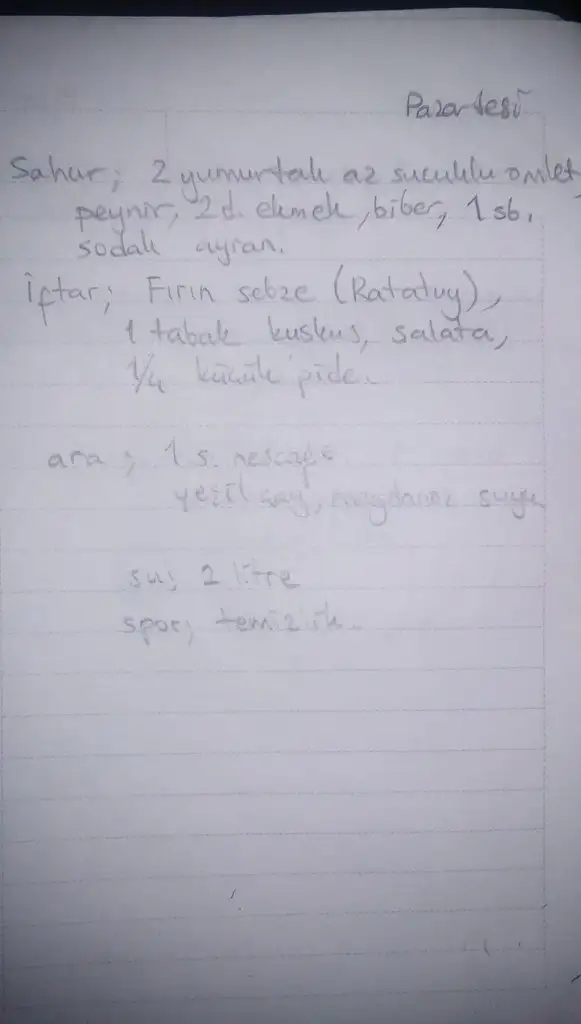 Pazartesi
Sahur; 2 yumurtalı az sucuklu omlet,
peynir, 2 d. ekmek, biber, 1 sb.
sodalı ayran.
İftar; Fırın sebze (Ratatuy),
1 tabak kuskus, salata,
1/4 küçük pide.
ara; 1 s. nescafe
yeşil çay, maydanoz suyu
su; 2 litre
spor; temizlik.